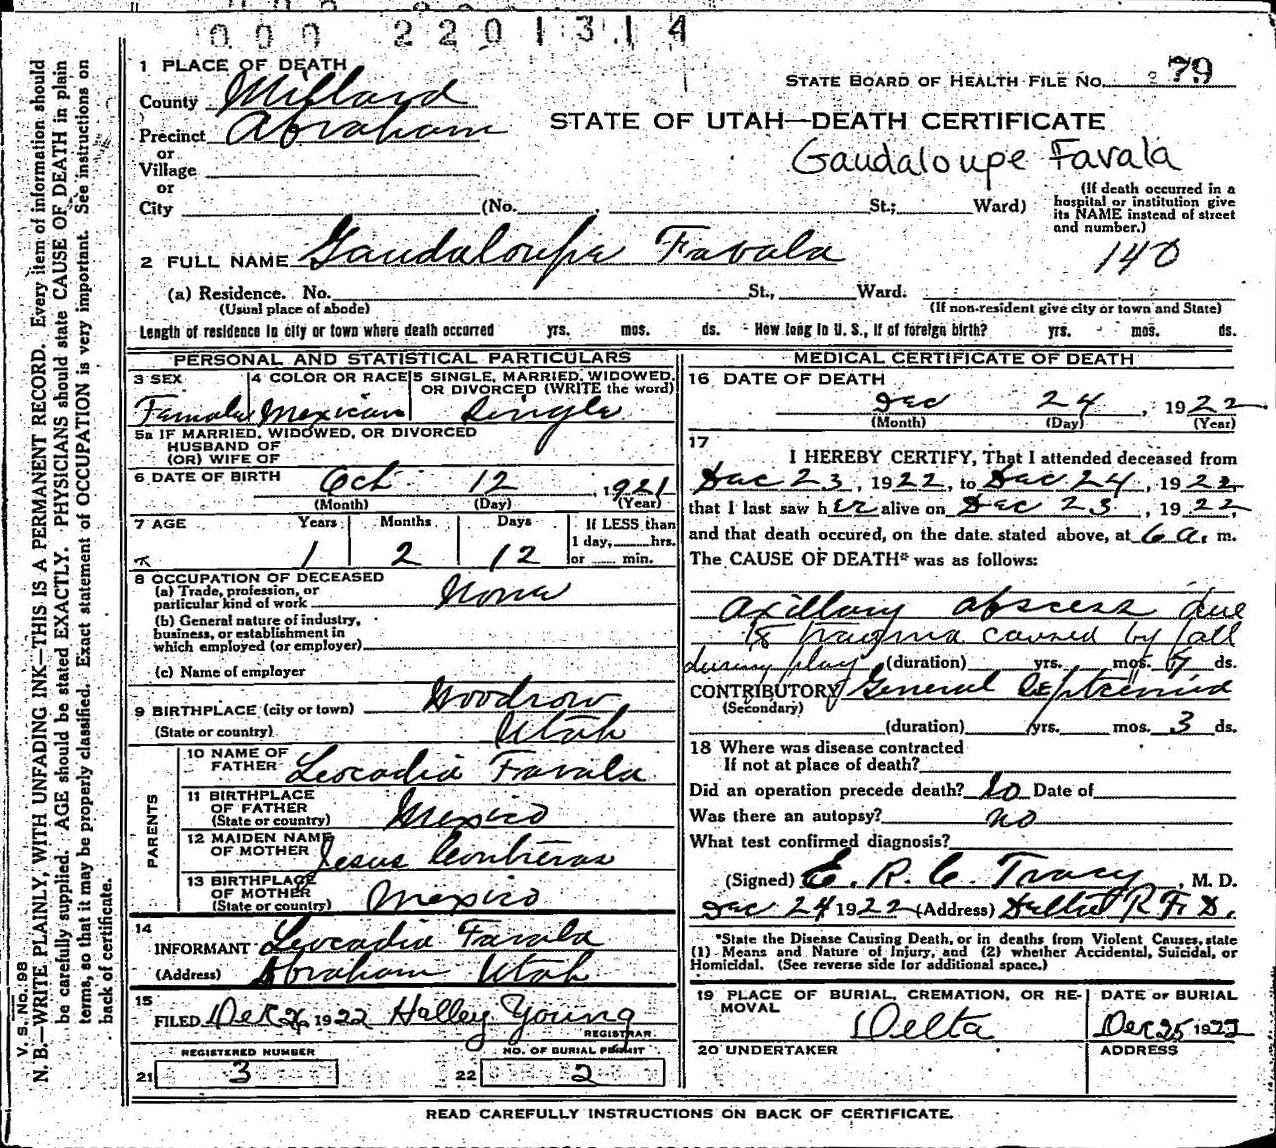 000 2201314
1 PLACE OF DEATH
STATE BOARD OF HEALTH FILE No. 79
County Millard
Precinct Abraham
STATE OF UTAH—DEATH CERTIFICATE
Gaudaloupe Favala
or
Village
or
City (No. , St.; Ward)
(If death occurred in a
hospital or institution give
its NAME instead of street
and number.)
2 FULL NAME Gaudaloupe Favala
140
(a) Residence. No. St., Ward.
(Usual place of abode) (If non-resident give city or town and State)
Length of residence in city or town where death occurred yrs. mos. ds. - How long in U. S., if of foreign birth? yrs. mos. ds.
PERSONAL AND STATISTICAL PARTICULARS
3 SEX 4 COLOR OR RACE 5 SINGLE, MARRIED, WIDOWED,
OR DIVORCED (WRITE the word)
Female Mexican Single
5a IF MARRIED, WIDOWED, OR DIVORCED
HUSBAND OF
(OR) WIFE OF
6 DATE OF BIRTH Oct 12, 1921
(Month) (Day) (Year)
7 AGE Years Months Days If LESS than
1 day, hrs.
1 2 12 or min.
8 OCCUPATION OF DECEASED
(a) Trade, profession, or
particular kind of work None
(b) General nature of industry,
business, or establishment in
which employed (or employer)
(c) Name of employer
9 BIRTHPLACE (city or town) Woodrow
(State or country) Utah
PARENTS
10 NAME OF
FATHER Leocadia Favala
11 BIRTHPLACE
OF FATHER
(State or country) Mexico
12 MAIDEN NAME
OF MOTHER Jesus Contreras
13 BIRTHPLACE
OF MOTHER
(State or country) Mexico
14
INFORMANT Leocadia Favala
(Address) Abraham Utah
15
FILED Dec 26 1922 Halley Young
REGISTRAR
REGISTERED NUMBER NO. OF BURIAL PERMIT
21 3 22 2
MEDICAL CERTIFICATE OF DEATH
16 DATE OF DEATH
Dec 24, 1922
(Month) (Day) (Year)
17
I HEREBY CERTIFY, That I attended deceased from
Dec 23, 1922, to Dec 24, 1922
that I last saw her alive on Dec 23, 1922,
and that death occured, on the date stated above, at 6 a. m.
The CAUSE OF DEATH* was as follows:
Axillary abscess due
to trauma caused by fall
during play (duration) yrs. mos. ds.
CONTRIBUTORY General Septicemia
(Secondary)
(duration) yrs. mos. 3 ds.
18 Where was disease contracted
If not at place of death?
Did an operation precede death? No Date of
Was there an autopsy? no
What test confirmed diagnosis?
(Signed) E. R. C. Tracy, M. D.
Dec 24 1922 (Address) Delta R F D.
*State the Disease Causing Death, or in deaths from Violent Causes, state
(1) Means and Nature of Injury, and (2) whether Accidental, Suicidal, or
Homicidal. (See reverse side for additional space.)
19 PLACE OF BURIAL, CREMATION, OR RE-
MOVAL
DATE OF BURIAL
Delta Dec 25 1922
20 UNDERTAKER ADDRESS
READ CAREFULLY INSTRUCTIONS ON BACK OF CERTIFICATE.
V. S. No. 98
N. B.—WRITE PLAINLY, WITH UNFADING INK—THIS IS A PERMANENT RECORD. Every item of information should
be carefully supplied. AGE should be stated EXACTLY. PHYSICIANS should state CAUSE OF DEATH in plain
terms, so that it may be properly classified. Exact statement of OCCUPATION is very important. See instructions on
back of certificate.